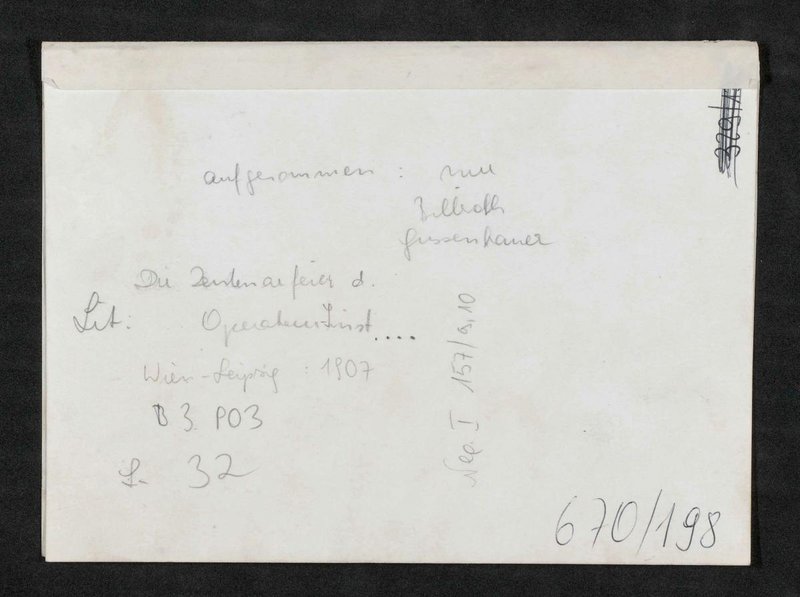 aufgenommen : nur
Billroth
Gussenbauer
Die Zentenarfeier d.
Lit: Operateur-Inst....
Wien-Leipzig : 1907
B3 PO3
S. 32
Neg. I 157/a,10
670/198